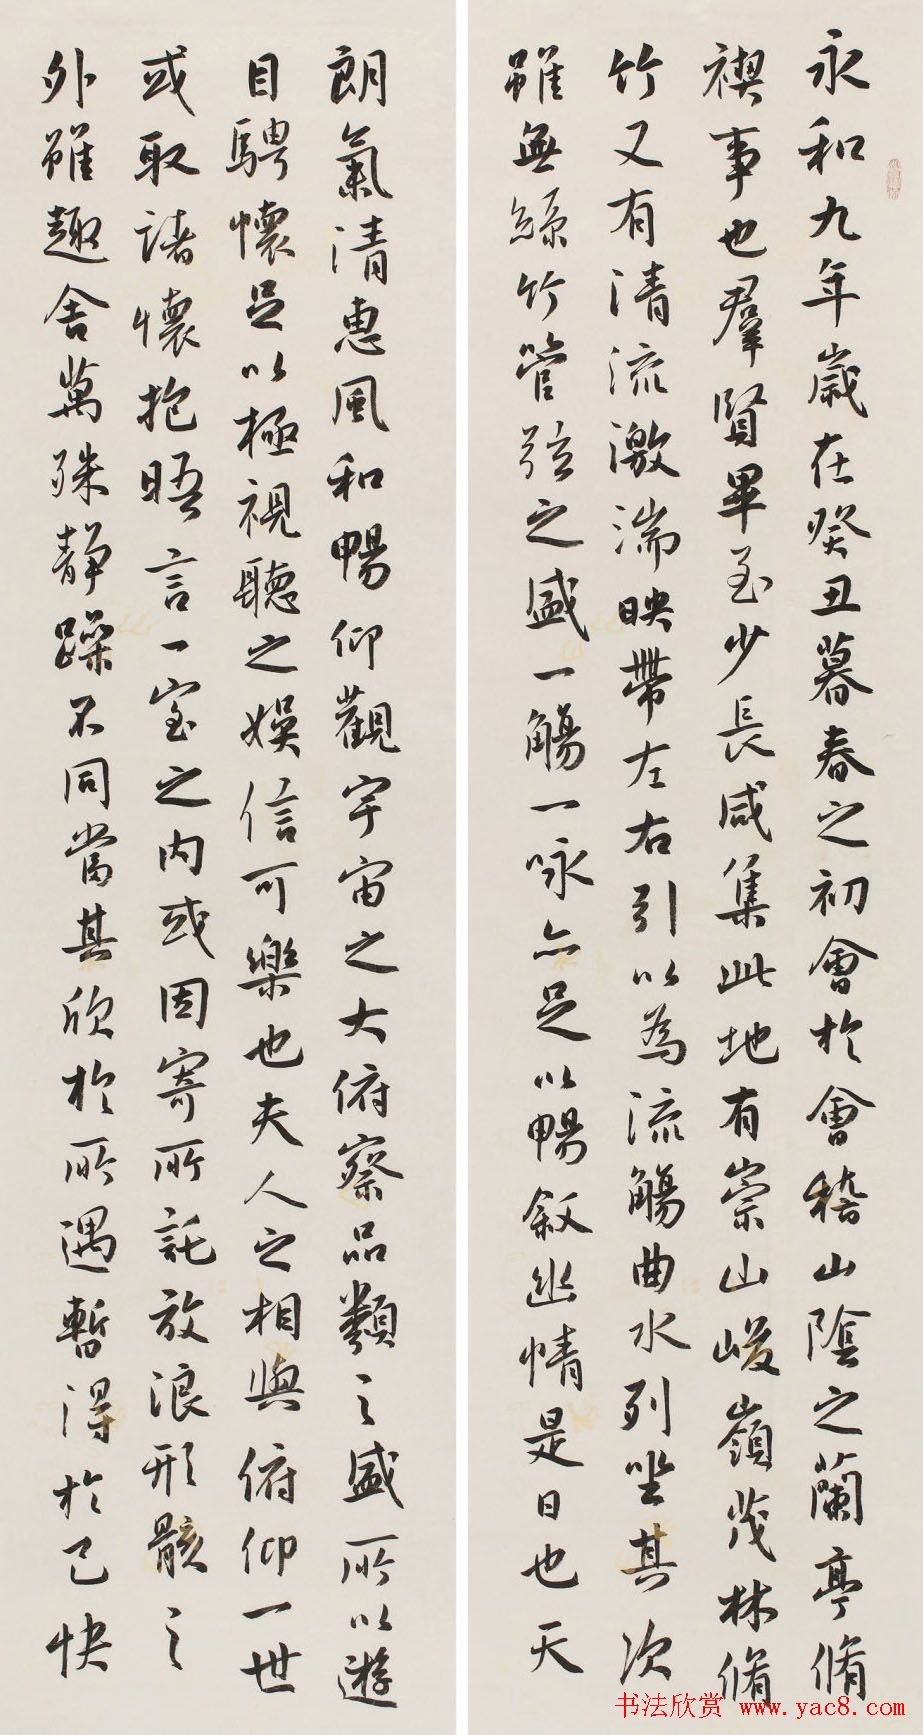 永和九年歲在癸丑暮春之初會於會稽山陰之蘭亭脩
禊事也羣賢畢至少長咸集此地有崇山峻嶺茂林脩
竹又有清流激湍映帶左右引以為流觴曲水列坐其次
雖無絲竹管弦之盛一觴一咏亦足以暢敘幽情是日也天
朗氣清惠風和暢仰觀宇宙之大俯察品類之盛所以遊
目騁懷足以極視聽之娛信可樂也夫人之相與俯仰一世
或取諸懷抱晤言一室之內或因寄所託放浪形骸之
外雖趣舍萬殊靜躁不同當其欣於所遇暫得於己快
书法欣赏 www.yac8.com